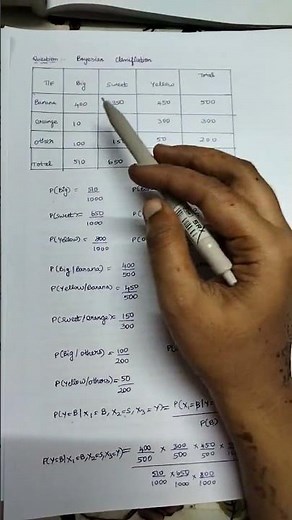 Question: Bayesian Classification
Tip Big Sweet Yellow Total
Banana 400 350 450 500
Orange 10 300 300
Other 100 15 50 200
Total 510 650
P(Big) = 510/1000
P(Sweet) = 650/1000
P(Yellow) = 800/1000
P(Big/Banana) = 400/500
P(Yellow/Banana) = 450/500
P(Sweet/Orange) = 150/300
P(Big/others) = 100/200
P(Yellow/others) = 50/200
P(Y=B|x₁=B, x₂=S, x₃=Y) = P(x₁=B|Y= / P(B)
P(Y=B|x₁=B, x₂=S, x₃=Y) = 400/500 × 300/500 × 450/500 ×
510/1000 × 650/1000 × 800/1000